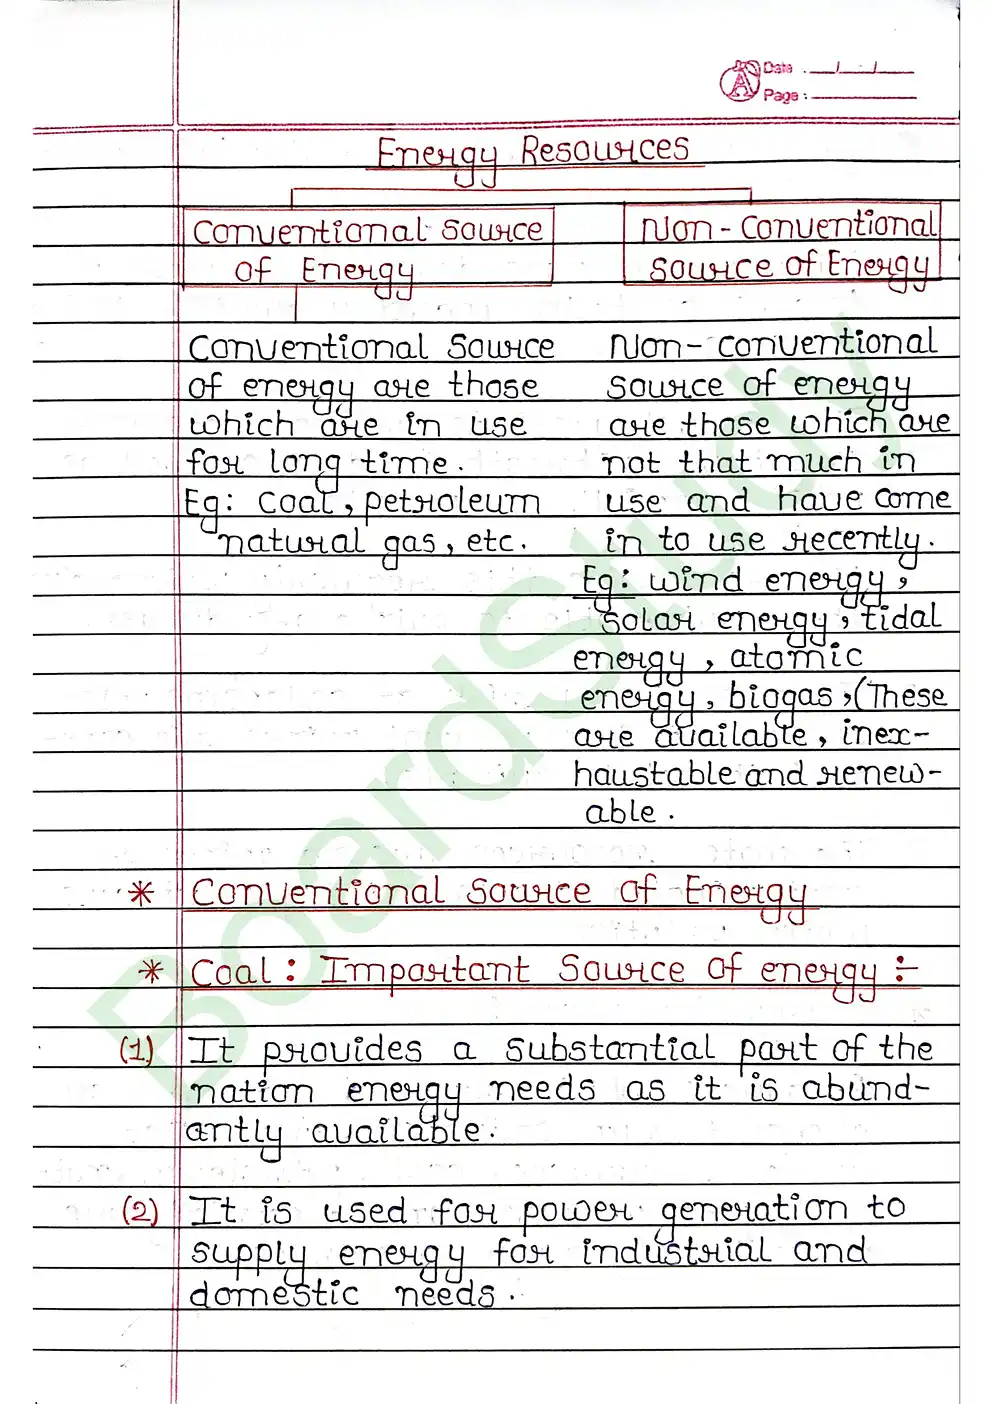 Date : __/__/__
Page : ________
Energy Resources
Conventional Source
of Energy
Non-Conventional
Source of Energy
Conventional Source
of energy are those
which are in use
for long time.
Eg: Coal, petroleum
natural gas, etc.
Non-conventional
source of energy
are those which are
not that much in
use and have come
in to use recently.
Eg: wind energy,
solar energy, tidal
energy, atomic
energy, biogas, (These
are available, inex-
haustable and renew-
able.
* Conventional Source of Energy
* Coal: Important Source of energy :-
(1) It provides a substantial part of the
nation energy needs as it is abund-
antly available.
(2) It is used for power generation to
supply energy for industrial and
domestic needs.
BoardStudy